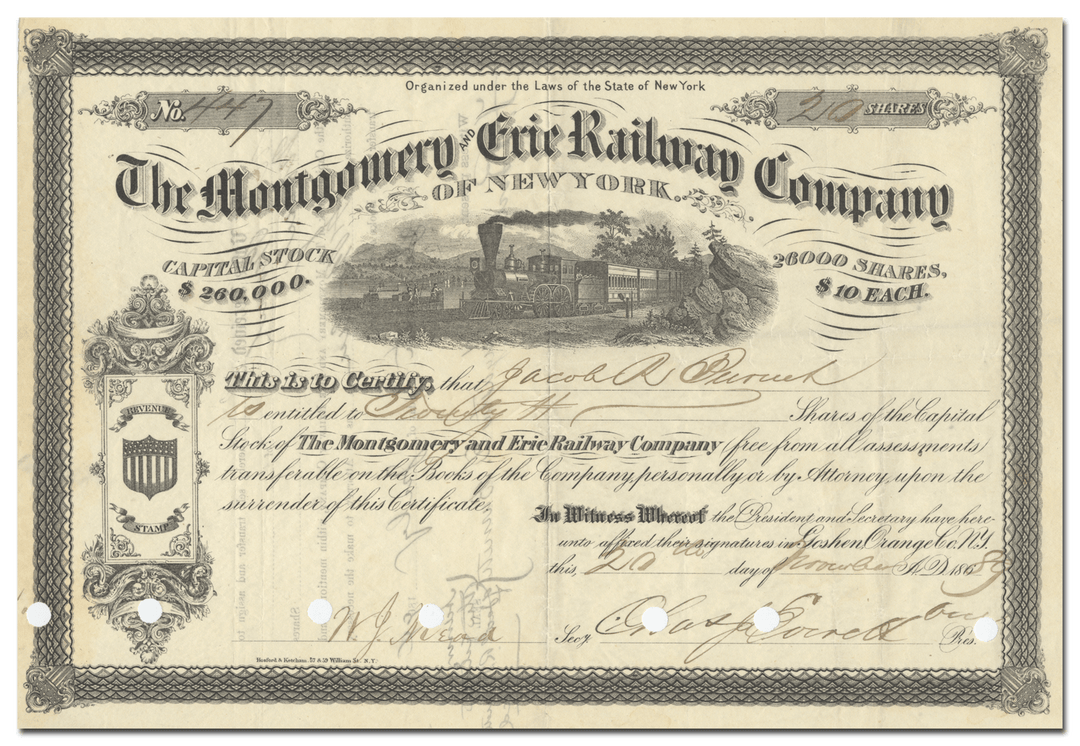 Organized under the Laws of the State of New York
No. 447
20 SHARES
The Montgomery AND Erie Railway Company
OF NEW YORK
CAPITAL STOCK
$260,000.
26000 SHARES,
$10 EACH.
This is to Certify, that Jacob R
is entitled to Shares of the Capital
Stock of The Montgomery and Erie Railway Company (free from all assessments)
transferable on the Books of the Company, personally or by Attorney, upon the
surrender of this Certificate.
REVENUE
STAMP
In Witness Whereof the President and Secretary have here-
unto affixed their signatures in Goshen, Orange Co. N.Y.
this, 20 day of November A.D. 186
W. J. Mead Secy Chas J Everett Pres.
Hosford & Ketcham. 57 & 59 William St. N.Y.